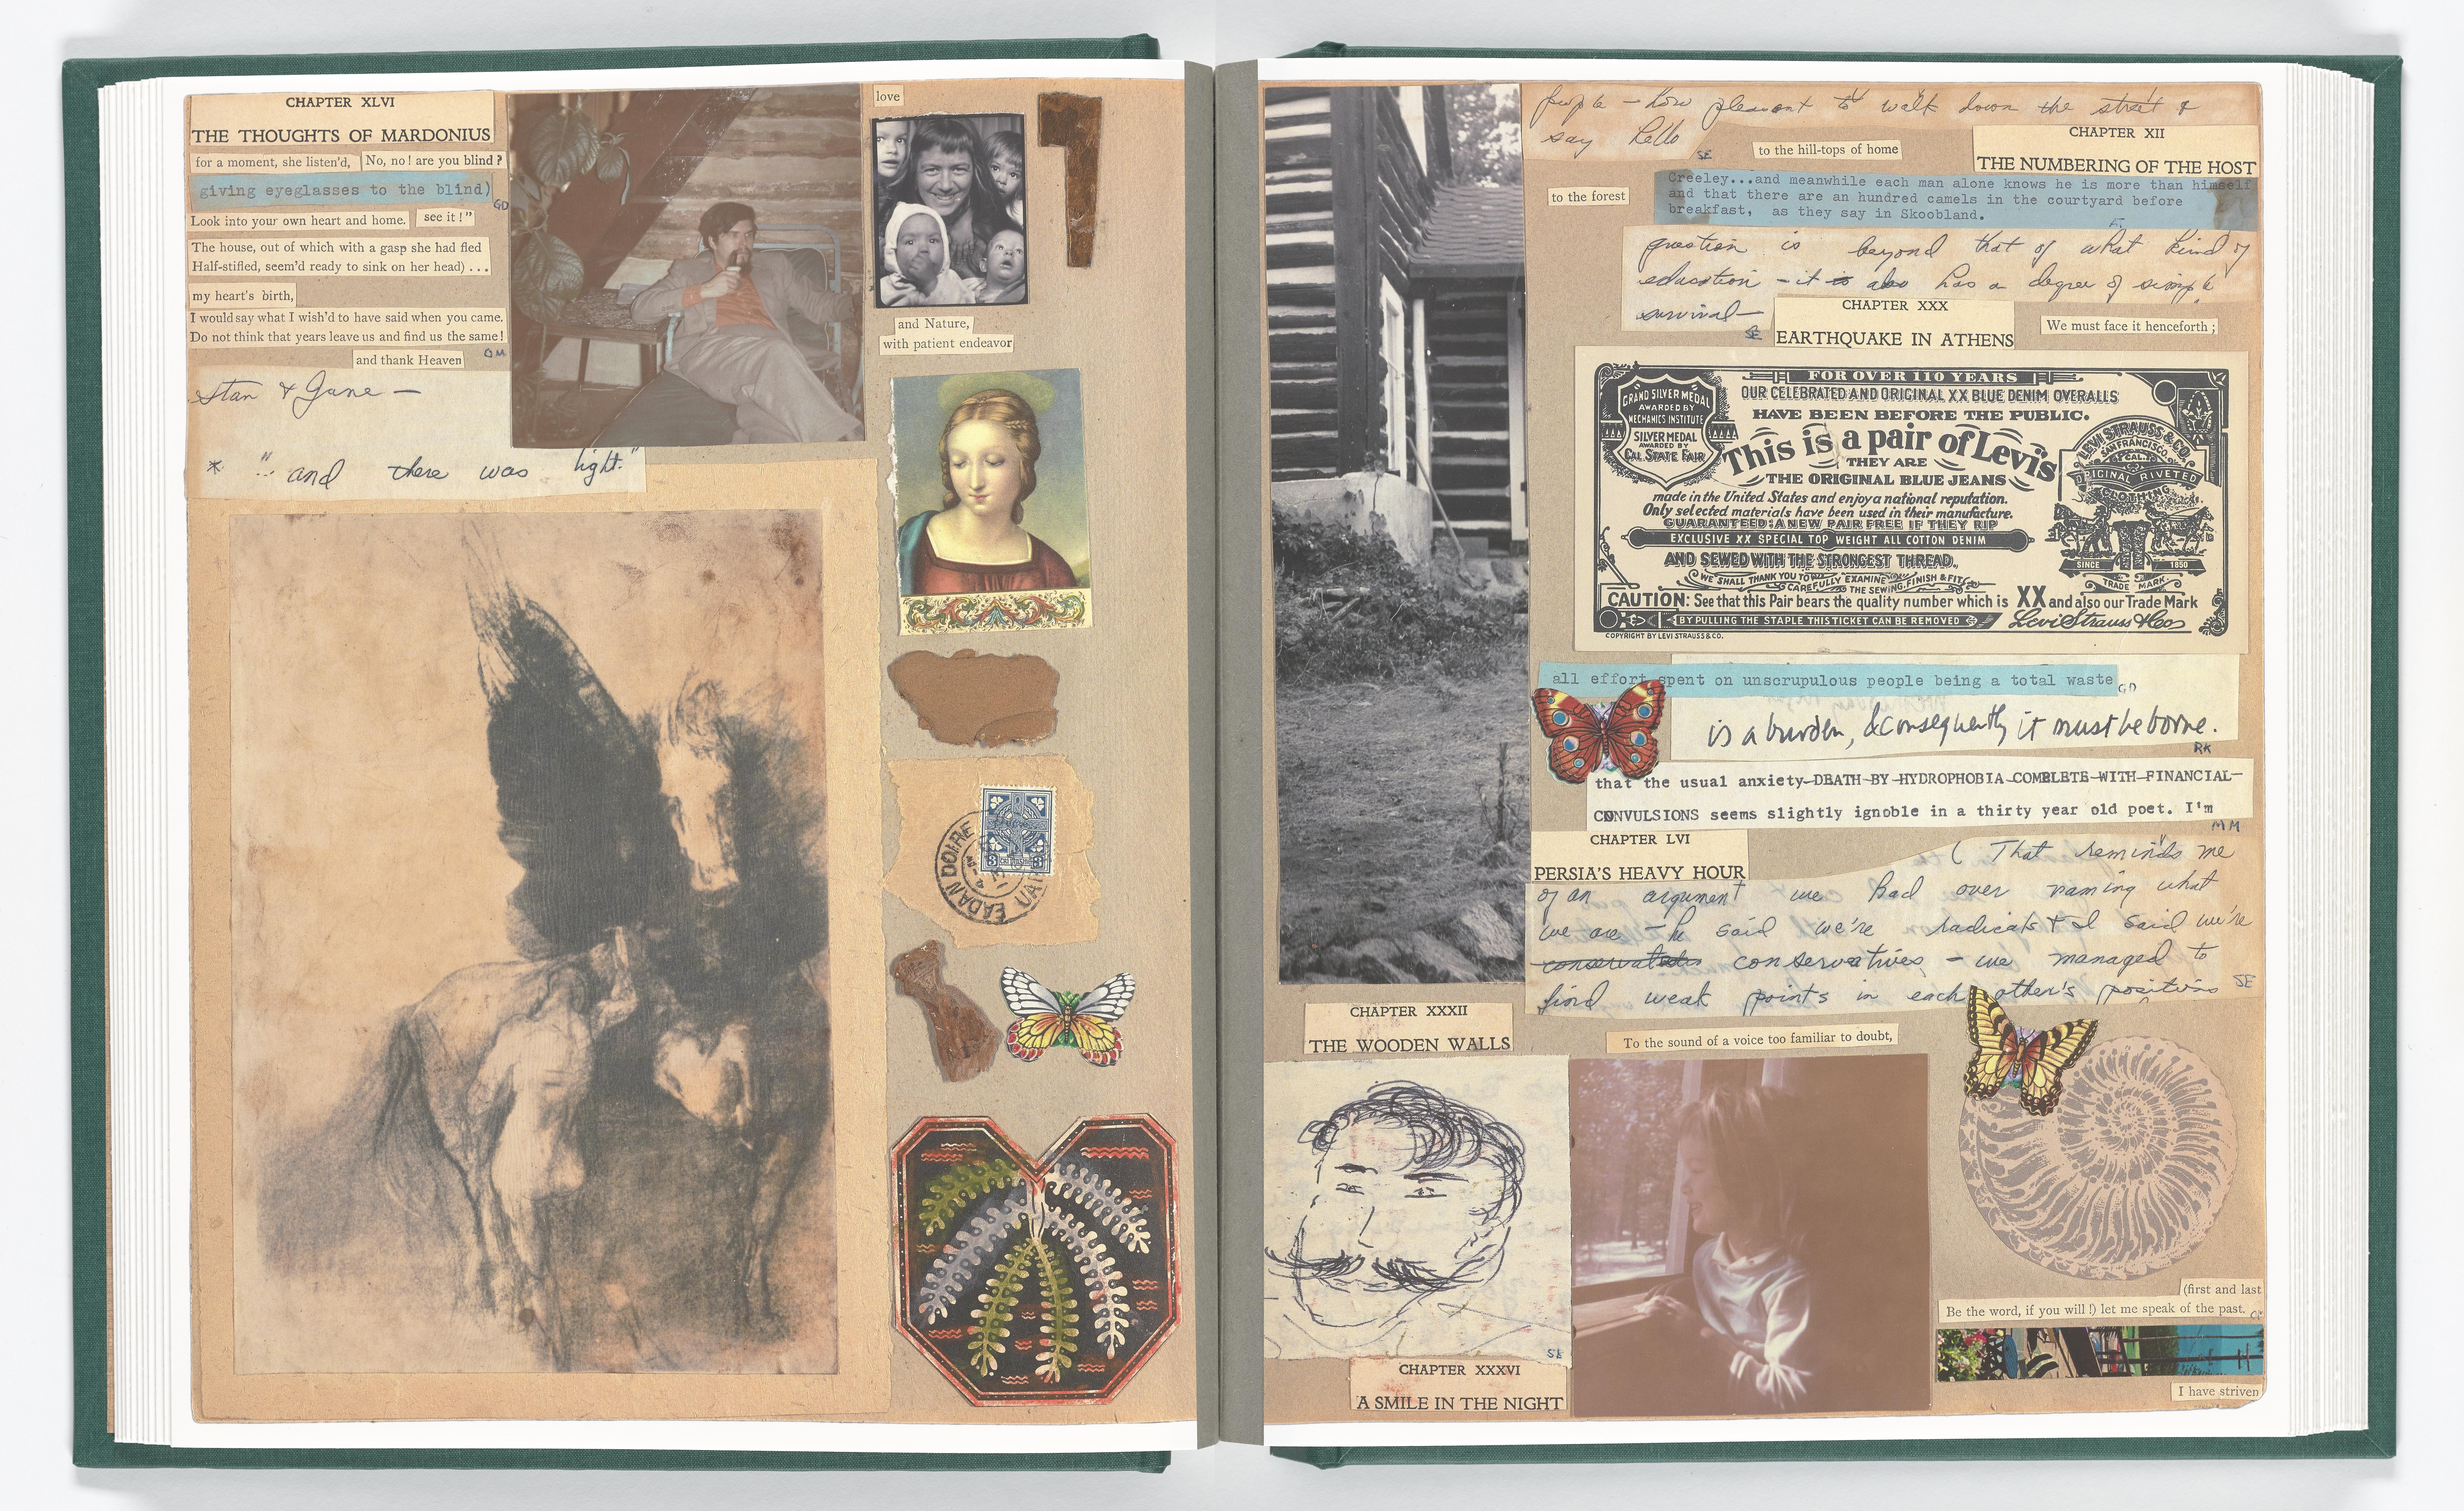 CHAPTER XLVI
THE THOUGHTS OF MARDONIUS
for a moment, she listen'd,
No, no! are you blind?
giving eyeglasses to the blind)
GD
Look into your own heart and home.
see it!"
The house, out of which with a gasp she had fled
Half-stifled, seem'd ready to sink on her head) ...
my heart's birth,
I would say what I wish'd to have said when you came.
Do not think that years leave us and find us the same!
and thank Heaven
OM
Stan & Jane —
* "... and there was light."
love
and Nature,
with patient endeavor
people — how pleasant to walk down the street &
say hello
SE
to the hill-tops of home
CHAPTER XII
THE NUMBERING OF THE HOST
to the forest
Creeley...and meanwhile each man alone knows he is more than himself
and that there are an hundred camels in the courtyard before
breakfast, as they say in Skoobland.
question is beyond that of what kind of
education - it is also has a degree of simple
survival —
SE
CHAPTER XXX
EARTHQUAKE IN ATHENS
We must face it henceforth;
FOR OVER 110 YEARS
OUR CELEBRATED AND ORIGINAL XX BLUE DENIM OVERALLS
HAVE BEEN BEFORE THE PUBLIC.
GRAND SILVER MEDAL
AWARDED BY
MECHANICS INSTITUTE
SILVER MEDAL
AWARDED BY
CAL STATE FAIR
This is a pair of Levi's
THEY ARE
THE ORIGINAL BLUE JEANS
made in the United States and enjoy a national reputation.
Only selected materials have been used in their manufacture.
GUARANTEED: A NEW PAIR FREE IF THEY RIP
EXCLUSIVE XX SPECIAL TOP WEIGHT ALL COTTON DENIM
AND SEWED WITH THE STRONGEST THREAD.
WE SHALL THANK YOU TO
CAREFULLY EXAMINE
THE SEWING, FINISH & FIT.
LEVI STRAUSS & CO.
SAN FRANCISCO,
CAL.
ORIGINAL RIVETED
CLOTHING
SINCE 1850
TRADE MARK
CAUTION: See that this Pair bears the quality number which is XX and also our Trade Mark
BY PULLING THE STAPLE THIS TICKET CAN BE REMOVED
Levi Strauss & Co.
COPYRIGHT BY LEVI STRAUSS & CO.
all effort spent on unscrupulous people being a total waste
GD
is a burden, & consequently it must be borne.
RK
that the usual anxiety-DEATH-BY-HYDROPHOBIA-COMPLETE-WITH-FINANCIAL-
CONVULSIONS seems slightly ignoble in a thirty year old poet. I'm
MM
CHAPTER LVI
PERSIA'S HEAVY HOUR
( That reminds me
of an argument we had over naming what
we are - he said we're radicals & I said we're
conservatives - we managed to
find weak points in each other's positions
SE
CHAPTER XXXII
THE WOODEN WALLS
To the sound of a voice too familiar to doubt,
SE
CHAPTER XXXVI
A SMILE IN THE NIGHT
(first and last
Be the word, if you will!) let me speak of the past.
I have striven